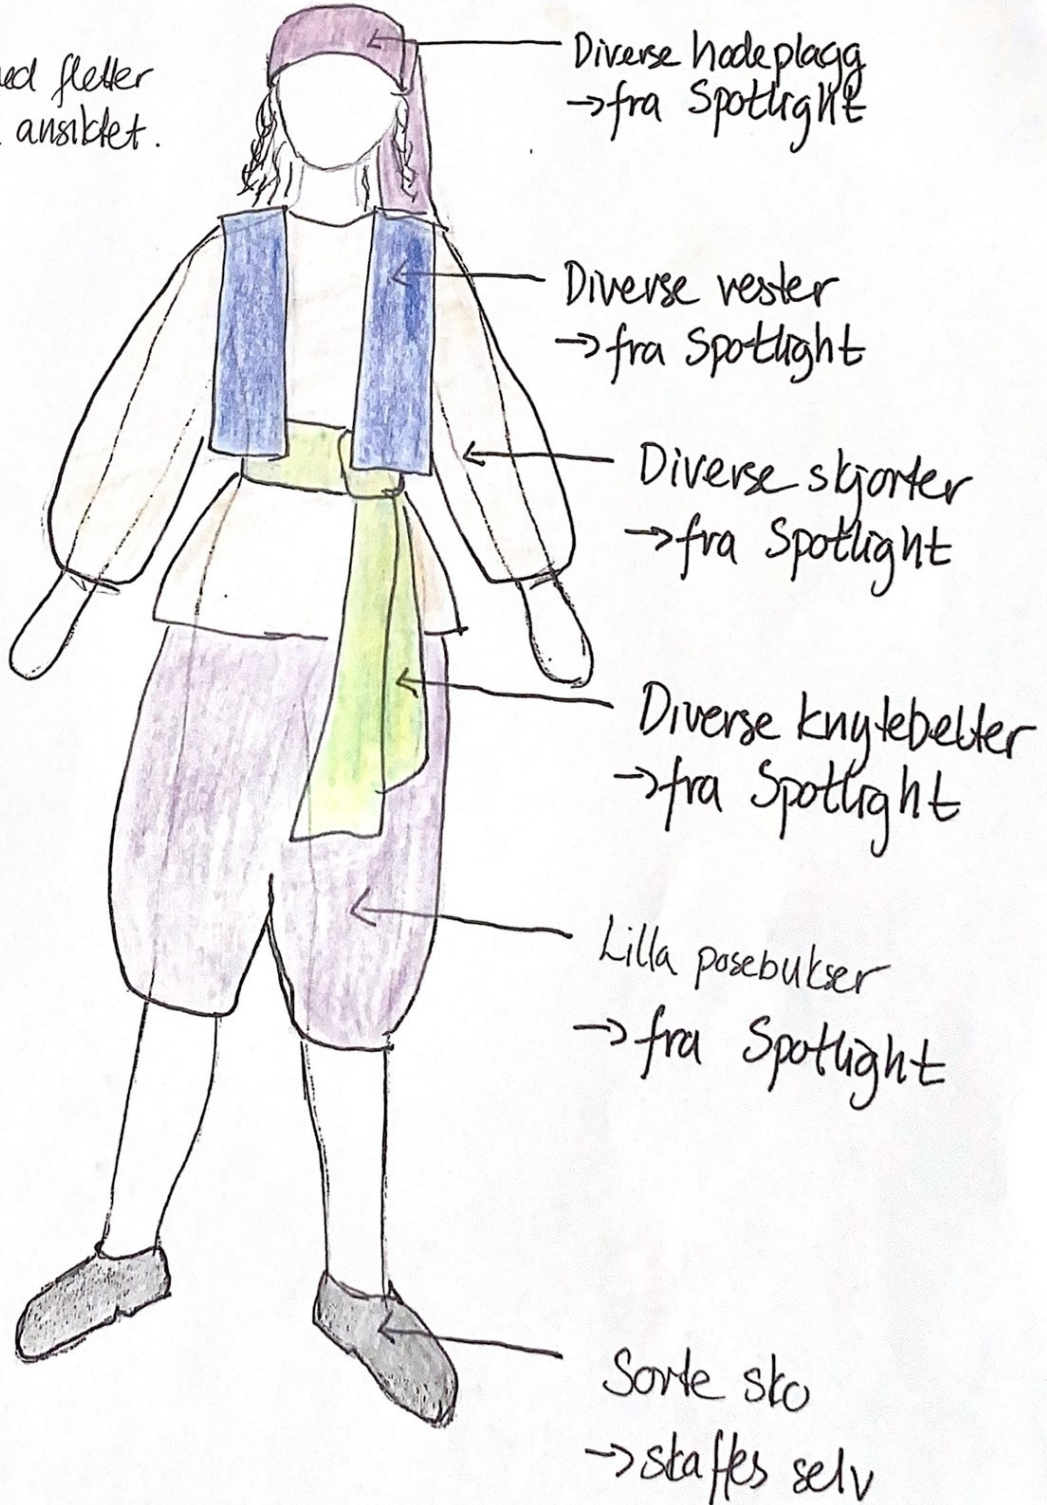 fletter
ansiktet.
Diverse hodeplagg
→fra Spotlight
Diverse vester
→fra Spotlight
Diverse skjorter
→fra Spotlight
Diverse knytebelter
→fra Spotlight
Lilla posebukser
→fra Spotlight
Sorte sko
→skaffes selv